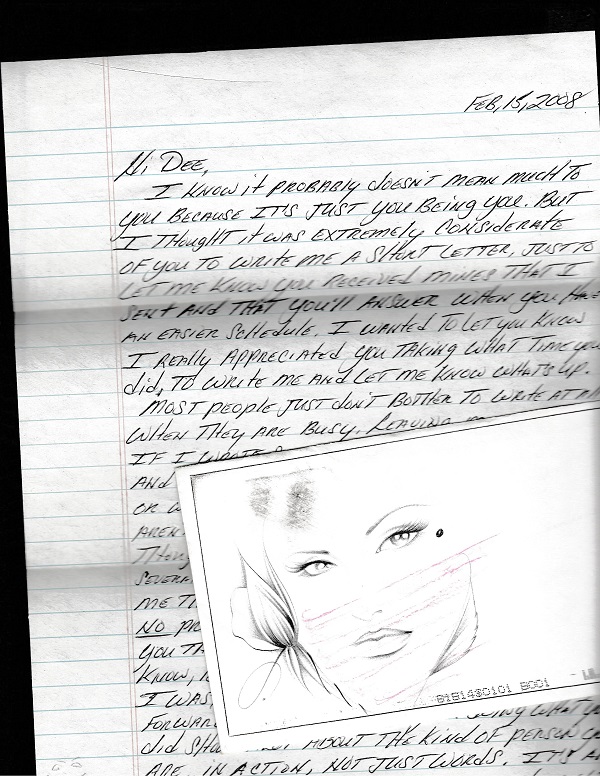 FEB, 15, 2008
Hi DEE,
I KNOW it PROBABLY doesn't MEAN MUCH TO
you BECAUSE IT'S JUST you BEING you. BUT
I THOUGHT it WAS EXTREMELY CONSIDERATE
OF you TO WRITE ME A SHORT LETTER, JUST TO
LET ME KNOW you RECEIVED MINES THAT I
SENT AND THAT you'll ANSWER WHEN you HAVE
AN EASIER SCHEDULE. I WANTED TO LET you KNOW
I REALLY APPRECIATED you TAKING WHAT TIME you
did, TO WRITE ME AND LET ME KNOW WHATS UP.
MOST PEOPLE JUST don't BOTHER TO WRITE AT All
WHEN THEY ARE BUSY. LEAVING
IF I
AND
OR
AREN
SEVERA
ME
NO PR
you TH
KNOW,
I WAS,
FORWAR
WHAT
did ABOUT THE KIND OF PERSON
ARE, IN ACTION, NOT JUST WORDS. IT'S
B1814$0101 B001